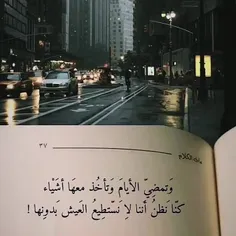 ٣٧
وَتمضِيّ الأيامَ وَتأخُذ معهَا أشْيَاء
كنّا نظنُ أننا لاَ نَستَطيعُ العَيش بَدونِها !